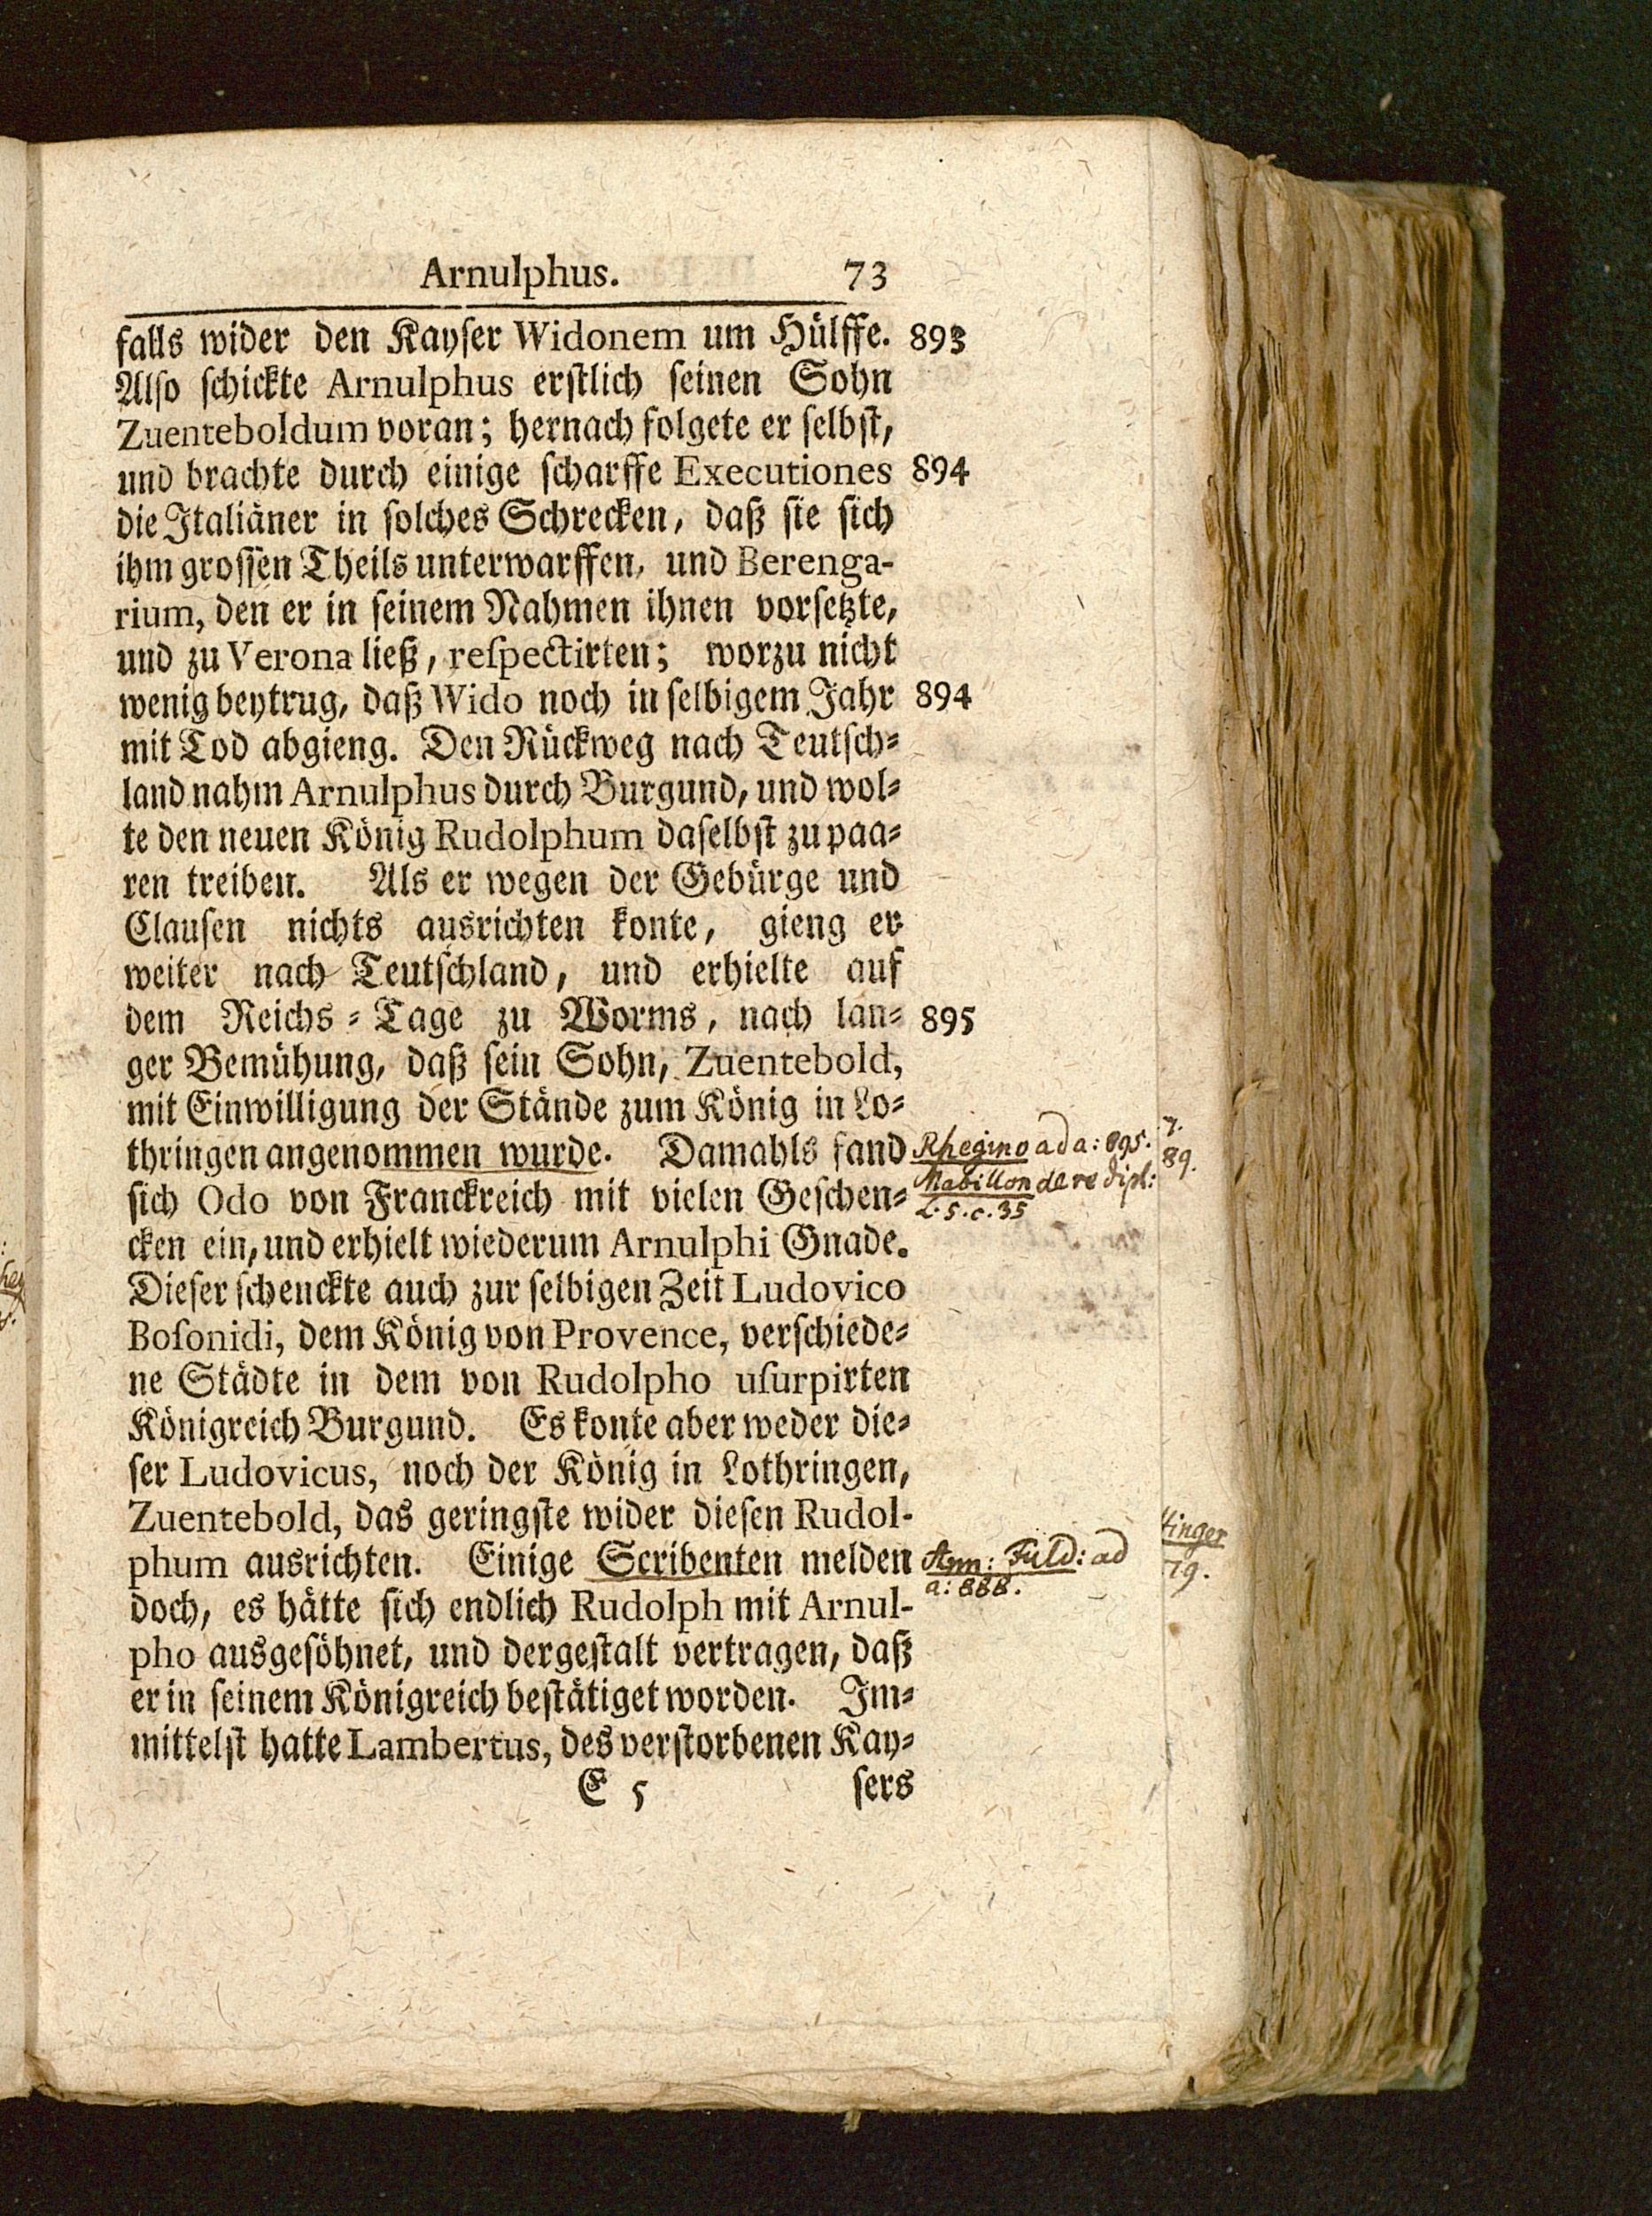 Arnulphus. 73
falls wider den Kayser Widonem um Hülffe. 893
Also schickte Arnulphus erstlich seinen Sohn
Zuenteboldum voran; hernach folgete er selbst,
und brachte durch einige scharffe Executiones 894
die Italiäner in solches Schrecken, daß sie sich
ihm grossen Theils unterwarffen, und Berenga-
rium, den er in seinem Nahmen ihnen vorsetzte,
und zu Verona ließ, reſpectirten; worzu nicht
wenig beytrug, daß Wido noch in selbigem Jahr 894
mit Tod abgieng. Den Rückweg nach Teutsch-
land nahm Arnulphus durch Burgund, und wol-
te den neuen König Rudolphum daselbst zu paa-
ren treiben. Als er wegen der Gebürge und
Clausen nichts ausrichten konte, gieng er
weiter nach Teutschland, und erhielte auf
dem Reichs-Tage zu Worms, nach lan- 895
ger Bemühung, daß sein Sohn, Zuentebold,
mit Einwilligung der Stände zum König in Lo-
thringen angenommen wurde. Damahls fand Rhegino ad a: 895.
sich Odo von Franckreich mit vielen Geschen- Mabillon de re dipl:
L. 5. c. 35
cken ein, und erhielt wiederum Arnulphi Gnade.
Dieser schenckte auch zur selbigen Zeit Ludovico
Boſonidi, dem König von Provence, verschiede-
ne Städte in dem von Rudolpho uſurpirten
Königreich Burgund. Es konte aber weder die-
ser Ludovicus, noch der König in Lothringen,
Zuentebold, das geringste wider diesen Rudol-
phum ausrichten. Einige Scribenten melden Ann: Fuld: ad
a: 888.
doch, es hätte sich endlich Rudolph mit Arnul-
pho ausgesöhnet, und dergestalt vertragen, daß
er in seinem Königreich bestätiget worden. Im-
mittelst hatte Lambertus, des verstorbenen Kay-
E 5 sers
7.
89.
tinger
79.